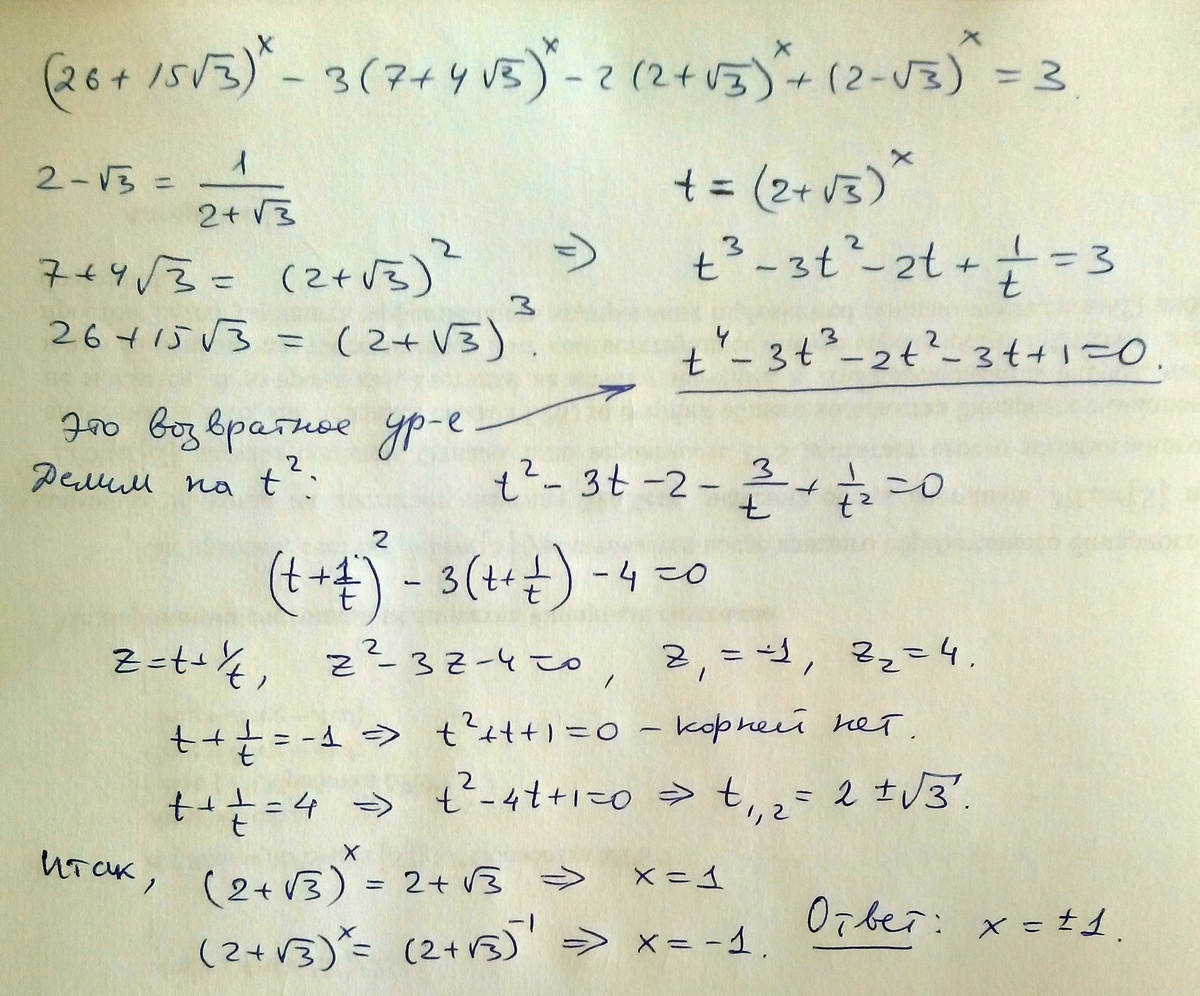 (26+15√3)^x − 3(7+4√3)^x − 2(2+√3)^x + (2−√3)^x = 3.
2−√3 = 1/(2+√3)
t = (2+√3)^x
7+4√3 = (2+√3)^2 ⇒ t^3 − 3t^2 − 2t + 1/t = 3
26+15√3 = (2+√3)^3.
t^4 − 3t^3 − 2t^2 − 3t + 1 = 0.
Это возвратное ур-е
Делим на t^2: t^2 − 3t − 2 − 3/t + 1/t^2 = 0
(t + 1/t)^2 − 3(t + 1/t) − 4 = 0
z = t + 1/t, z^2 − 3z − 4 = 0, z₁ = −1, z₂ = 4.
t + 1/t = −1 ⇒ t^2 + t + 1 = 0 – корней нет.
t + 1/t = 4 ⇒ t^2 − 4t + 1 = 0 ⇒ t₁,₂ = 2 ± √3.
Итак, (2+√3)^x = 2+√3 ⇒ x = 1
(2+√3)^x = (2+√3)^−1 ⇒ x = −1. Ответ: x = ±1.